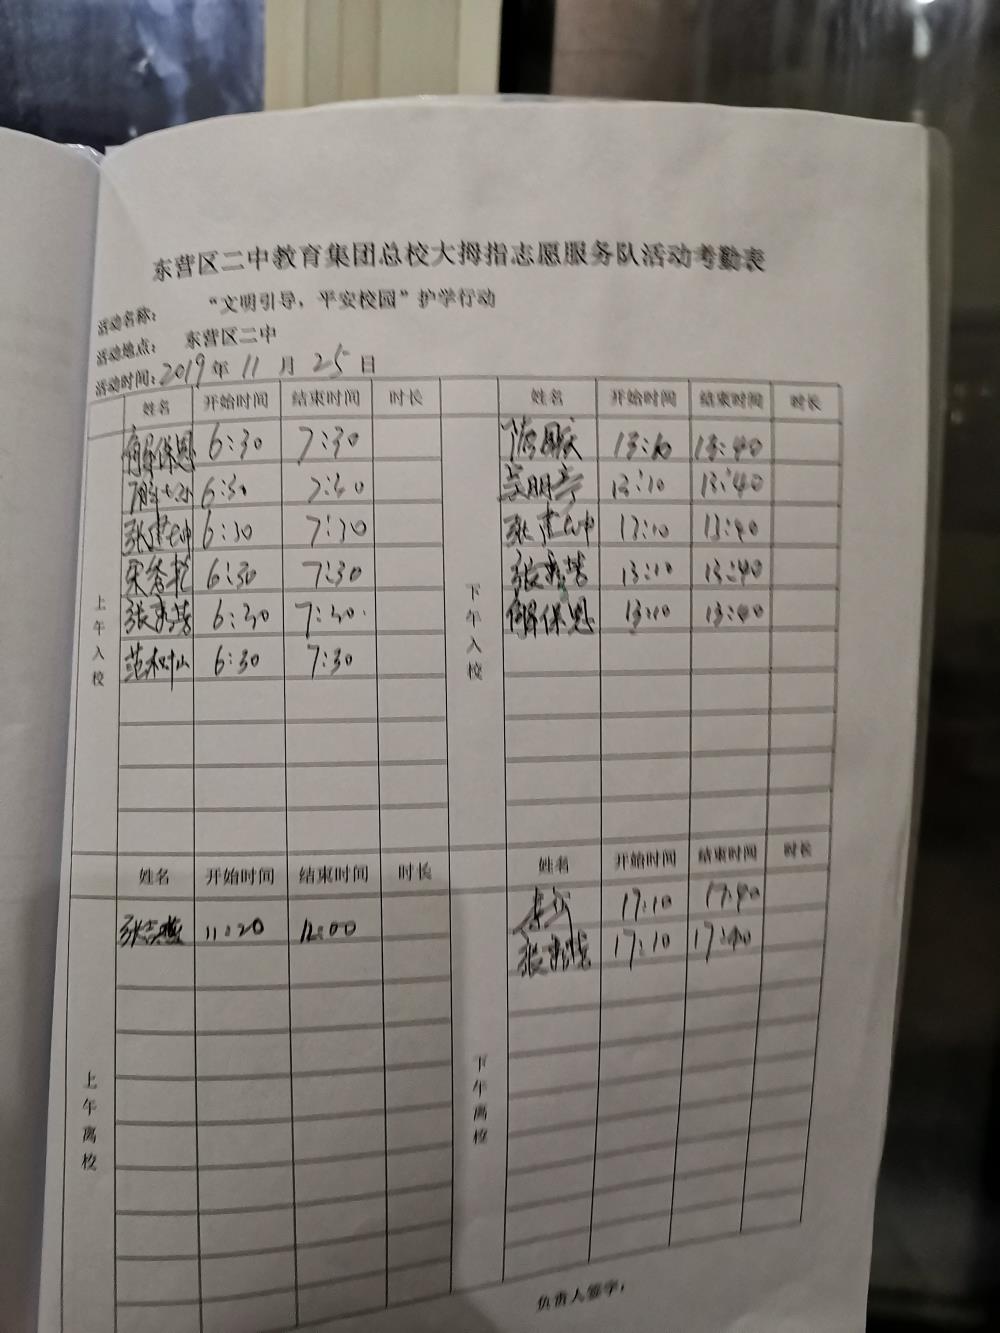 东营区二中教育集团总校大拇指志愿服务队活动考勤表
活动名称： “文明引导，平安校园”护学行动
活动地点： 东营区二中
活动时间：2019年11月25日
上午入校
姓名 开始时间 结束时间 时长
解保恩 6:30 7:30
6:30 7:30
张建坤 6:30 7:30
宋秀艳 6:30 7:30
张 6:30 7:30
范树山 6:30 7:30
下午入校
姓名 开始时间 结束时间 时长
13:10 13:40
13:10 13:40
张建坤 13:10 13:40
张 13:10 13:40
解保恩 13:10 13:40
上午离校
姓名 开始时间 结束时间 时长
张志燕 11:20 12:00
下午离校
姓名 开始时间 结束时间 时长
17:10 17:40
张 17:10 17:40
负责人签字：